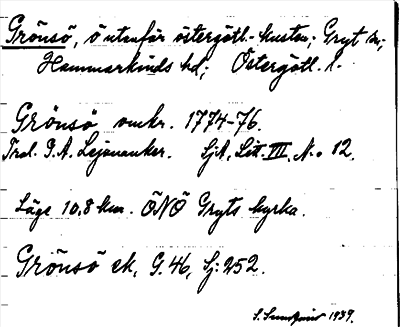 Grönsö, ö utanför östergötl.-kusten; Gryt sn;
Hammarkinds hd; Östergötl. l.
Grönsö omkr. 1774-76.
Trol. G. A. Lejonanker. SjA, Litt. III, N:o 12.
Läge 10,8 km. ÖNÖ Gryts kyrka.
Grönsö ek, G. 46, Sj: 252.
S. Sundqvist 1939.